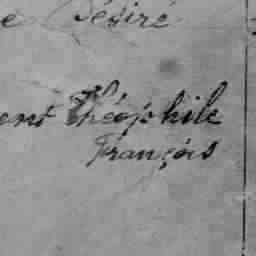 e Désiré
ent Théophile
François